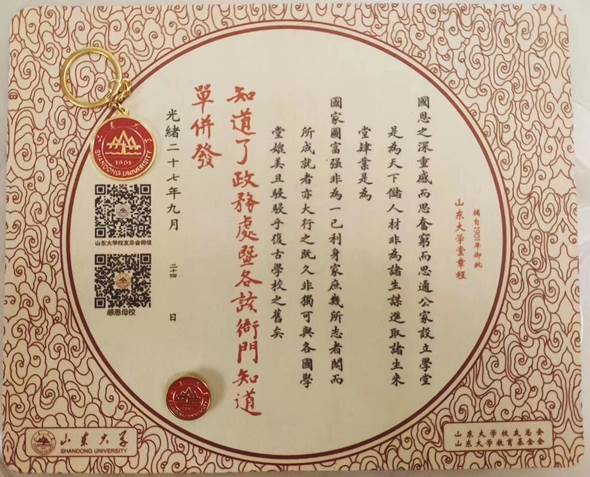 摘自1901年御批
山东大学堂章程
國恩之深重感而思奮窮而思通公家設立學堂
是為天下儲人材非為諸生謀進取諸生来
堂肄業是為
國家圖富强非為一己利身家庶幾所志者閎而
所成就者亦大行之既久非獨可與各國學
堂媲美且駸駸乎復古學校之舊矣
知道了政務處暨各該衙門知道
單併發
光緒二十七年九月 二十四 日
SHANDONG UNIVERSITY
1901
山东大学校友总会微信
感恩母校
山东大学
SHANDONG UNIVERSITY
山东大学校友总会
山东大学教育基金会